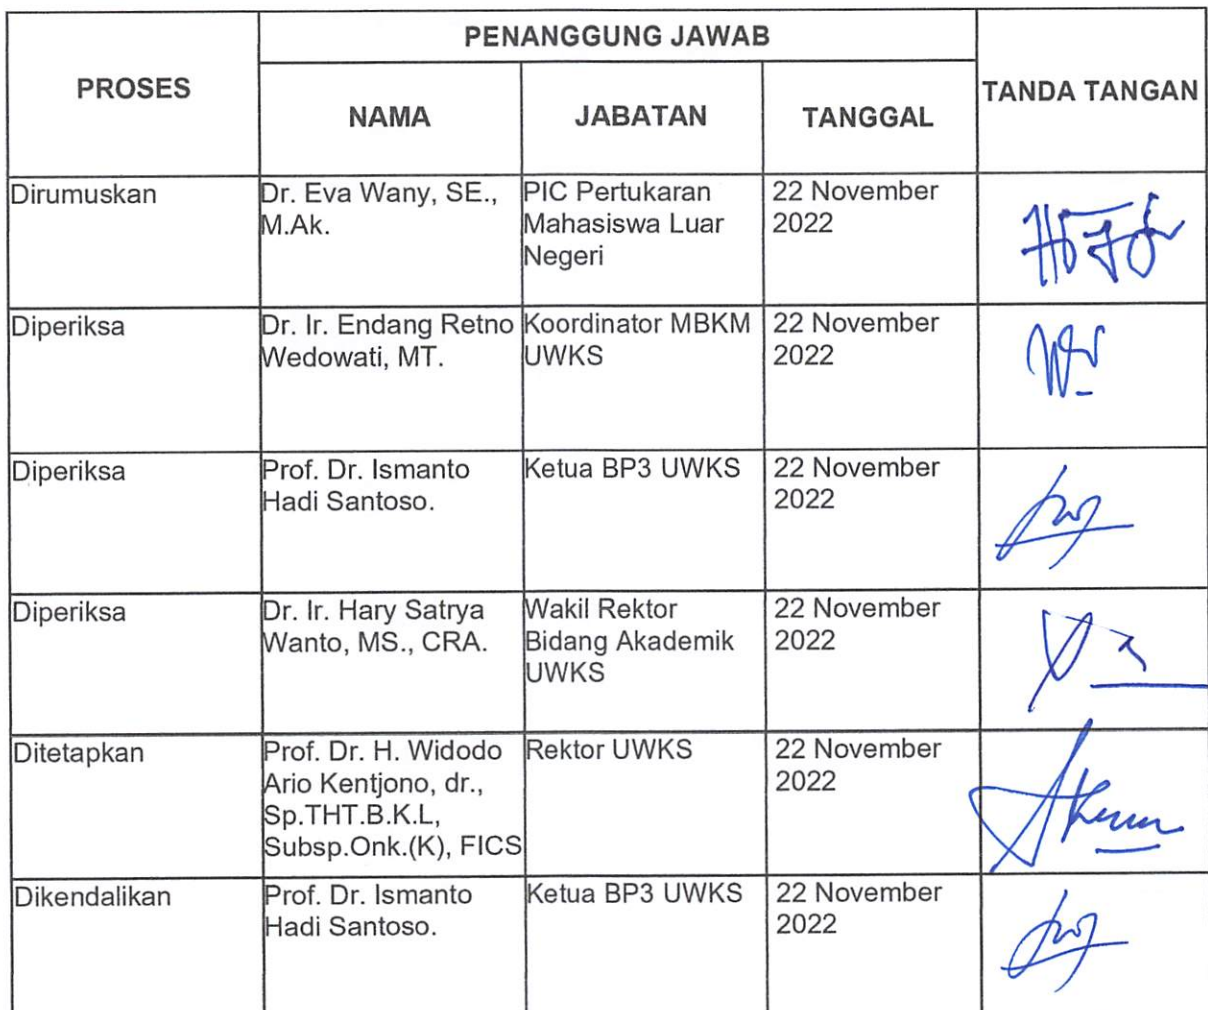 PROSES
PENANGGUNG JAWAB
TANDA TANGAN
NAMA
JABATAN
TANGGAL
Dirumuskan
Dr. Eva Wany, SE.,
M.Ak.
PIC Pertukaran
Mahasiswa Luar
Negeri
22 November
2022
Diperiksa
Dr. Ir. Endang Retno
Wedowati, MT.
Koordinator MBKM
UWKS
22 November
2022
Diperiksa
Prof. Dr. Ismanto
Hadi Santoso.
Ketua BP3 UWKS
22 November
2022
Diperiksa
Dr. Ir. Hary Satrya
Wanto, MS., CRA.
Wakil Rektor
Bidang Akademik
UWKS
22 November
2022
Ditetapkan
Prof. Dr. H. Widodo
Ario Kentjono, dr.,
Sp.THT.B.K.L,
Subsp.Onk.(K), FICS
Rektor UWKS
22 November
2022
Dikendalikan
Prof. Dr. Ismanto
Hadi Santoso.
Ketua BP3 UWKS
22 November
2022